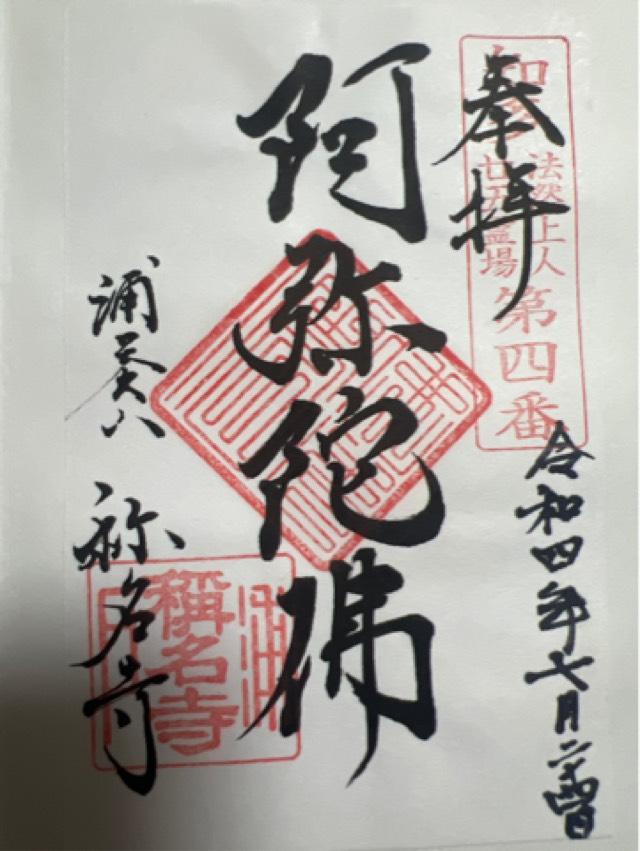 奉拝
法然上人
廿五霊場
第四番
令和四年七月二十四日
阿弥陀佛
称名寺
稱名寺